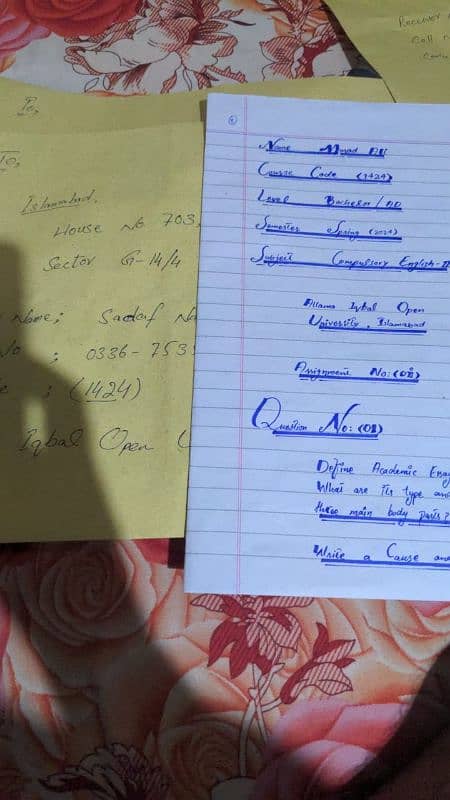 To,
To,
Islamabad.
House No 703,
Sector G-14/4
Name; Sadaf Na
No : 0336-753
: (1424)
Iqbal Open U
Receiver
Call
Name Murad Ali
Course Code (1424)
Level Bachelor/AD
Semester Spring (2024)
Subject Compulsory English-II
Allama Iqbal Open
University, Islamabad
Assignment No: (02)
Question No: (01)
Define Academic Essay
What are its type and
three main body parts?
Write a Cause and